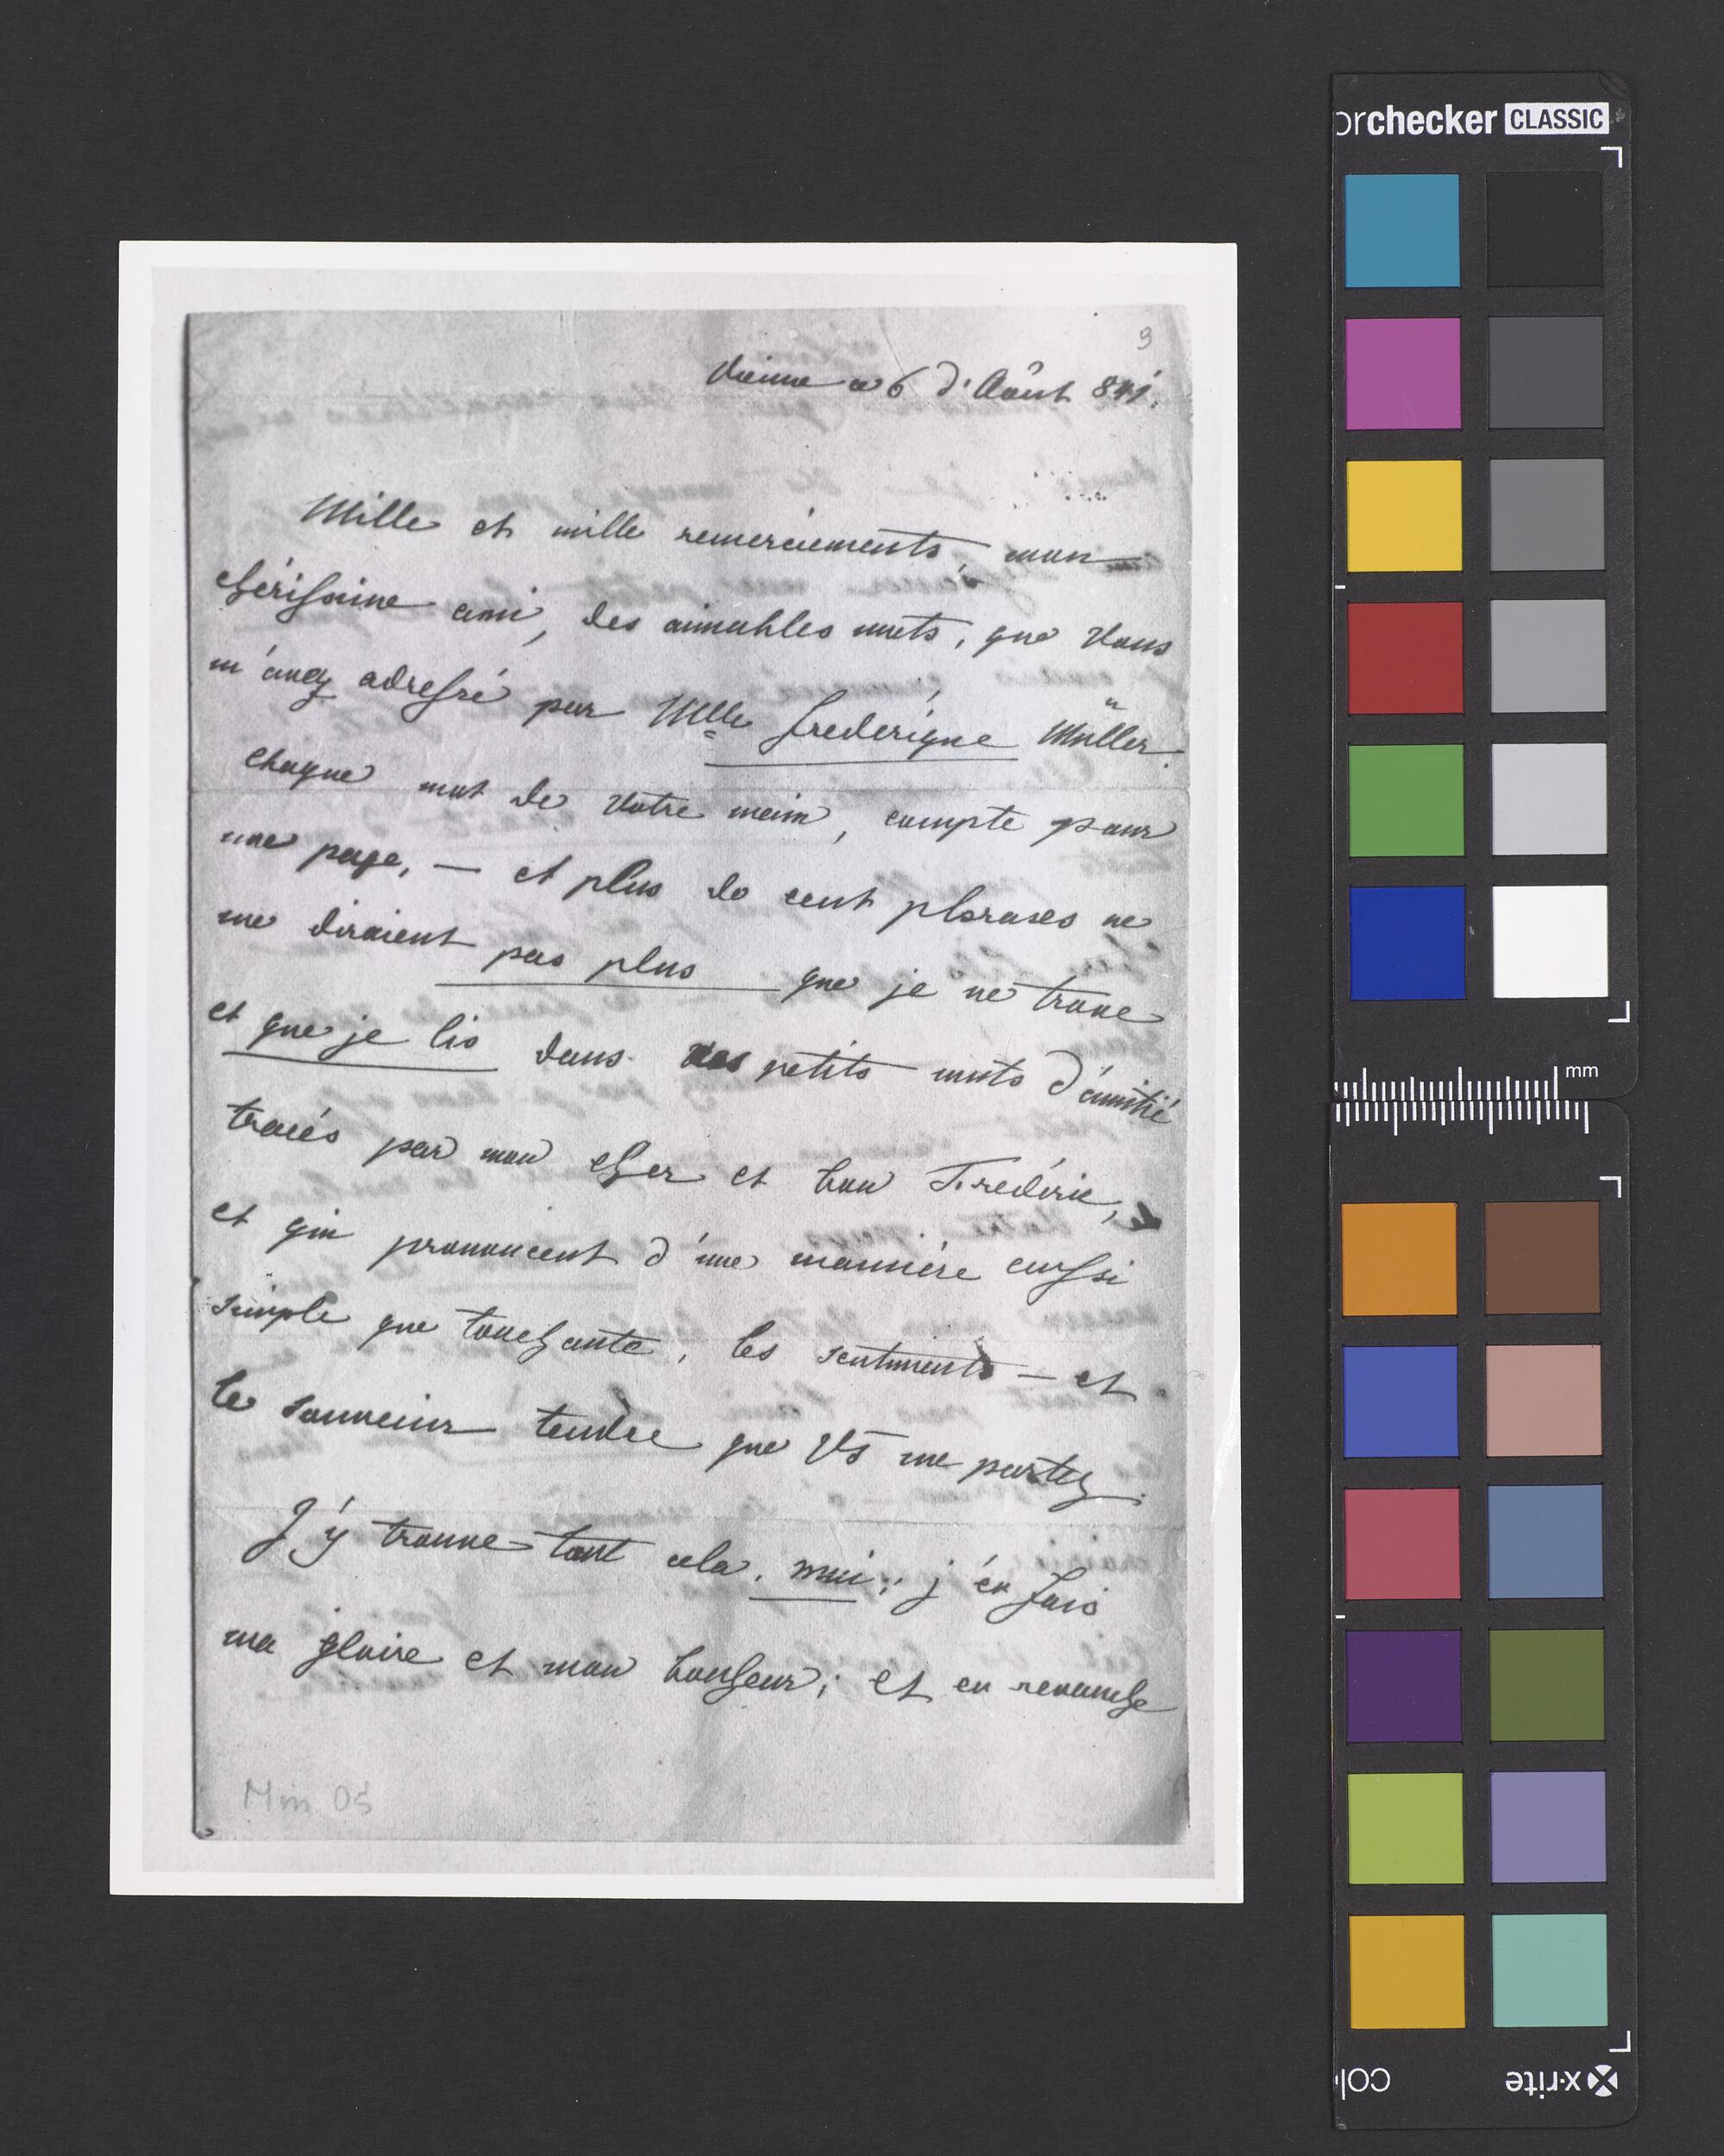 9
Vienne ce 6 d'Août 841.
Mille et mille remerciements, mon
chérissime ami, des aimables mots, que Vous
m'avez adressé par Mlle Frederique Müller.
Chaque mot de Votre main, compte pour
une page, — et plus de cent phrases ne
me diraient pas plus que je ne trouve
et que je lis dans ces petits mots d'amitié
tracés par mon cher et bon Frédéric,
et qui prononcent d'une mannière aussi
simple que touchante, les sentiments — et
le souvenir tendre que Vs me portez.
J'y trouve tout cela, moi; j'en fais
ma gloire et mon bonheur; et en revanche
orchecker CLASSIC
mm
x-rite